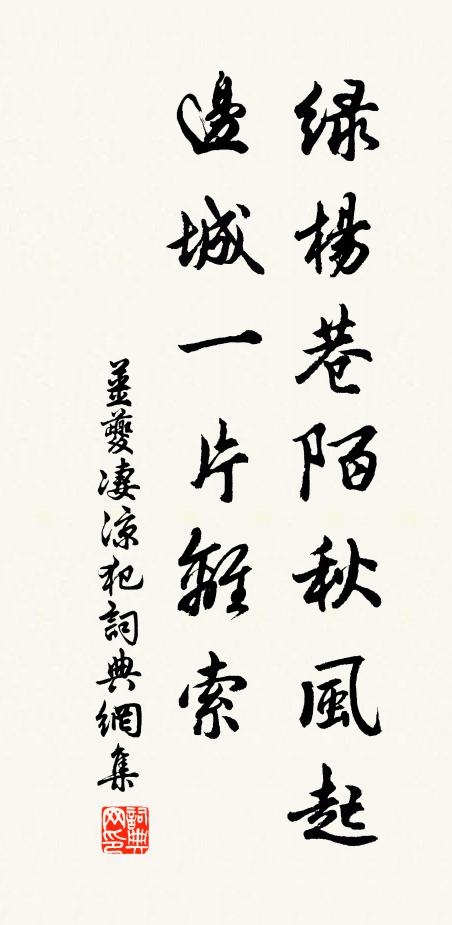 綠楊巷陌秋風起
邊城一片離索
姜夔淒涼犯詞典網集
詞典
网印